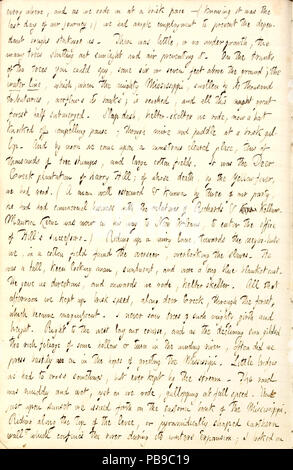 every where, and as we rode on at a brisk pace – (knowing it was the
last day of our journey,) we had ample employment to prevent the depen-
dent boughs striking us. There was little, or no undergrowth, the
many trees shutting out sunlight and air preventing it. On the trunks
of the trees you could spy, some six or seven feet above the ground, the
water line, which, when the mighty Mississippi, swollen by its thousand
tributaries, overflows its banks, is reached, and all this great
forest half submerged. Slap dash, helter-skelter we rode, now a halt
knocked off compelling pause; through mire and puddle at a brisk gal-
lop. And by noon we came upon a monstrous cleared place, tens of
thousands of tree stumps, and large cotton fields. It was the Deer
Creek plantation of Harry Hill; of whose death, by the Yellow fever,
we had read. (A man well esteemed & known by three of our party,
he had had commercial business with the relatives of Richards &
Maurice Keene was now on his way to New Orleans, to enter the office
of Hill's successors.) Riding up a miry lane, towards the
we, in a cotton field found the overseer, overlooking the slaves. He
was a tall, keen looking man, sunburnt, and wore a long blue blanket coat.
He gave us directions, and onwards we rode, helter skelter. All that
afternoon we kept up brisk speed, along deer Creek, through the forest,
which became magnificent. I never saw trees of such mighty girth and
height. Right to the west lay our course, and as the declining sun gilded
the rich foliage of some hollow or turn in the winding river, often did we
press eagerly on in the hopes of greeting the Mississippi. Little bridges
we had to cross sometimes, but ever kept by the stream. The road
was muddy and wet, just as we rode, galloping at full speed. And
just upon sunset we stood forth on the eastern bank of the Mississippi.
Riding along the top of the levee, or pyramidically shaped earthen
wall which confines the river during its winters expansion; I looked on
alamy
PB9C19